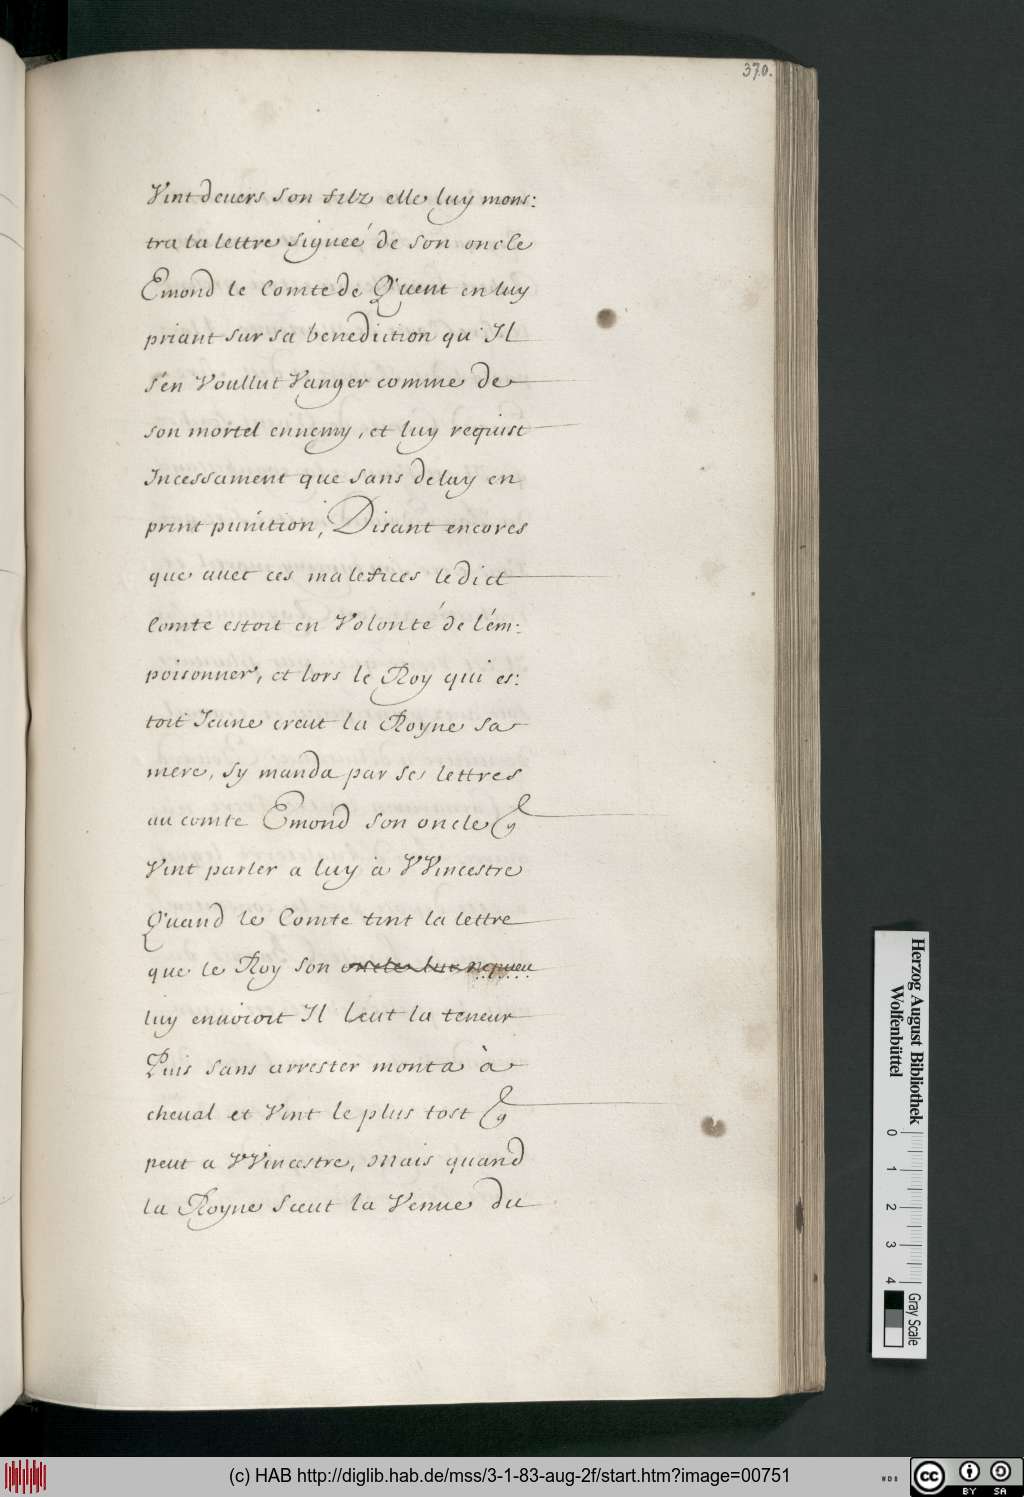 370.
Vint deuers son filz elle luy mons:
tra la lettre signeé de son oncle
Emond le Comte de Quent en luy
priant sur sa benediction qu'Il
s'en Voullut Vanger comme de
son mortel ennemy, et luy requist
Incessament que sans delay en
print punition, Disant encores
que auec ces malefices ledict
Comte estoit en Volonté de l'ém:
poisonner, et lors le Roy qui es:
toit Jeune creut la Royne sa
mere, sy manda par ses lettres
au comte Emond son oncle &
Vint parler a luy à VVincestre
Quand le Comte tint la lettre
que le Roy son nepueu
luy enuoioit Il leut la teneur
Puis sans arrester monta à
cheual et Vint le plus tost &
peut a VVincestre, Mais quand
la Royne sceut la Venue du
Herzog August Bibliothek
Wolfenbüttel
0 1 2 3 4
Gray Scale
(c) HAB http://diglib.hab.de/mss/3-1-83-aug-2f/start.htm?image=00751
WDB
cc BY SA